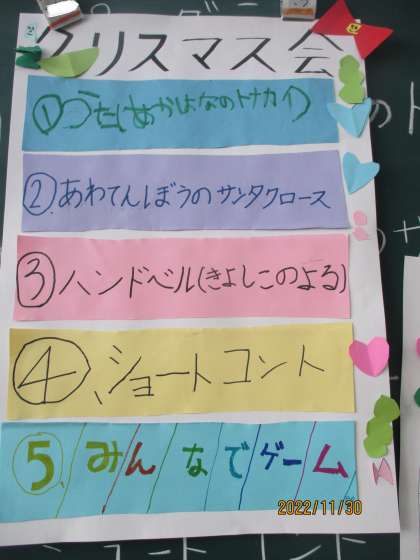 クリスマス会
①うた(あかはなのトナカイ)
②あわてんぼうのサンタクロース
③ハンドベル(きよしこのよる)
④、ショートコント
5、みんなでゲーム
2022/11/30